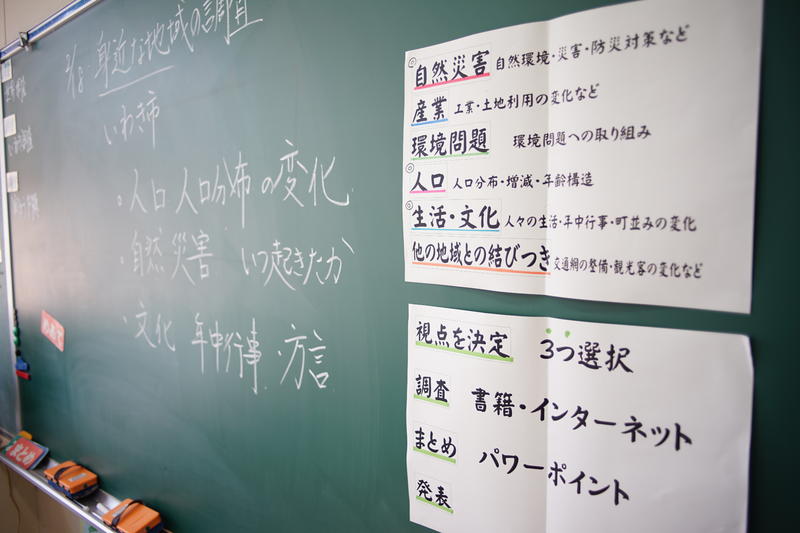 2/8 身近な地域の調査
いわき市
・人口 人口分布の変化
・自然災害 いつ起きたか
・文化 年中行事・方言
◎自然災害 自然環境・災害・防災対策など
産業 工業・土地利用の変化など
環境問題 環境問題への取り組み
◎人口 人口分布・増減・年齢構造
◎生活・文化 人々の生活・年中行事・町並みの変化
他の地域との結びつき 交通網の整備・観光客の変化など
視点を決定 3つ選択
調査 書籍・インターネット
まとめ パワーポイント
発表
まとめ